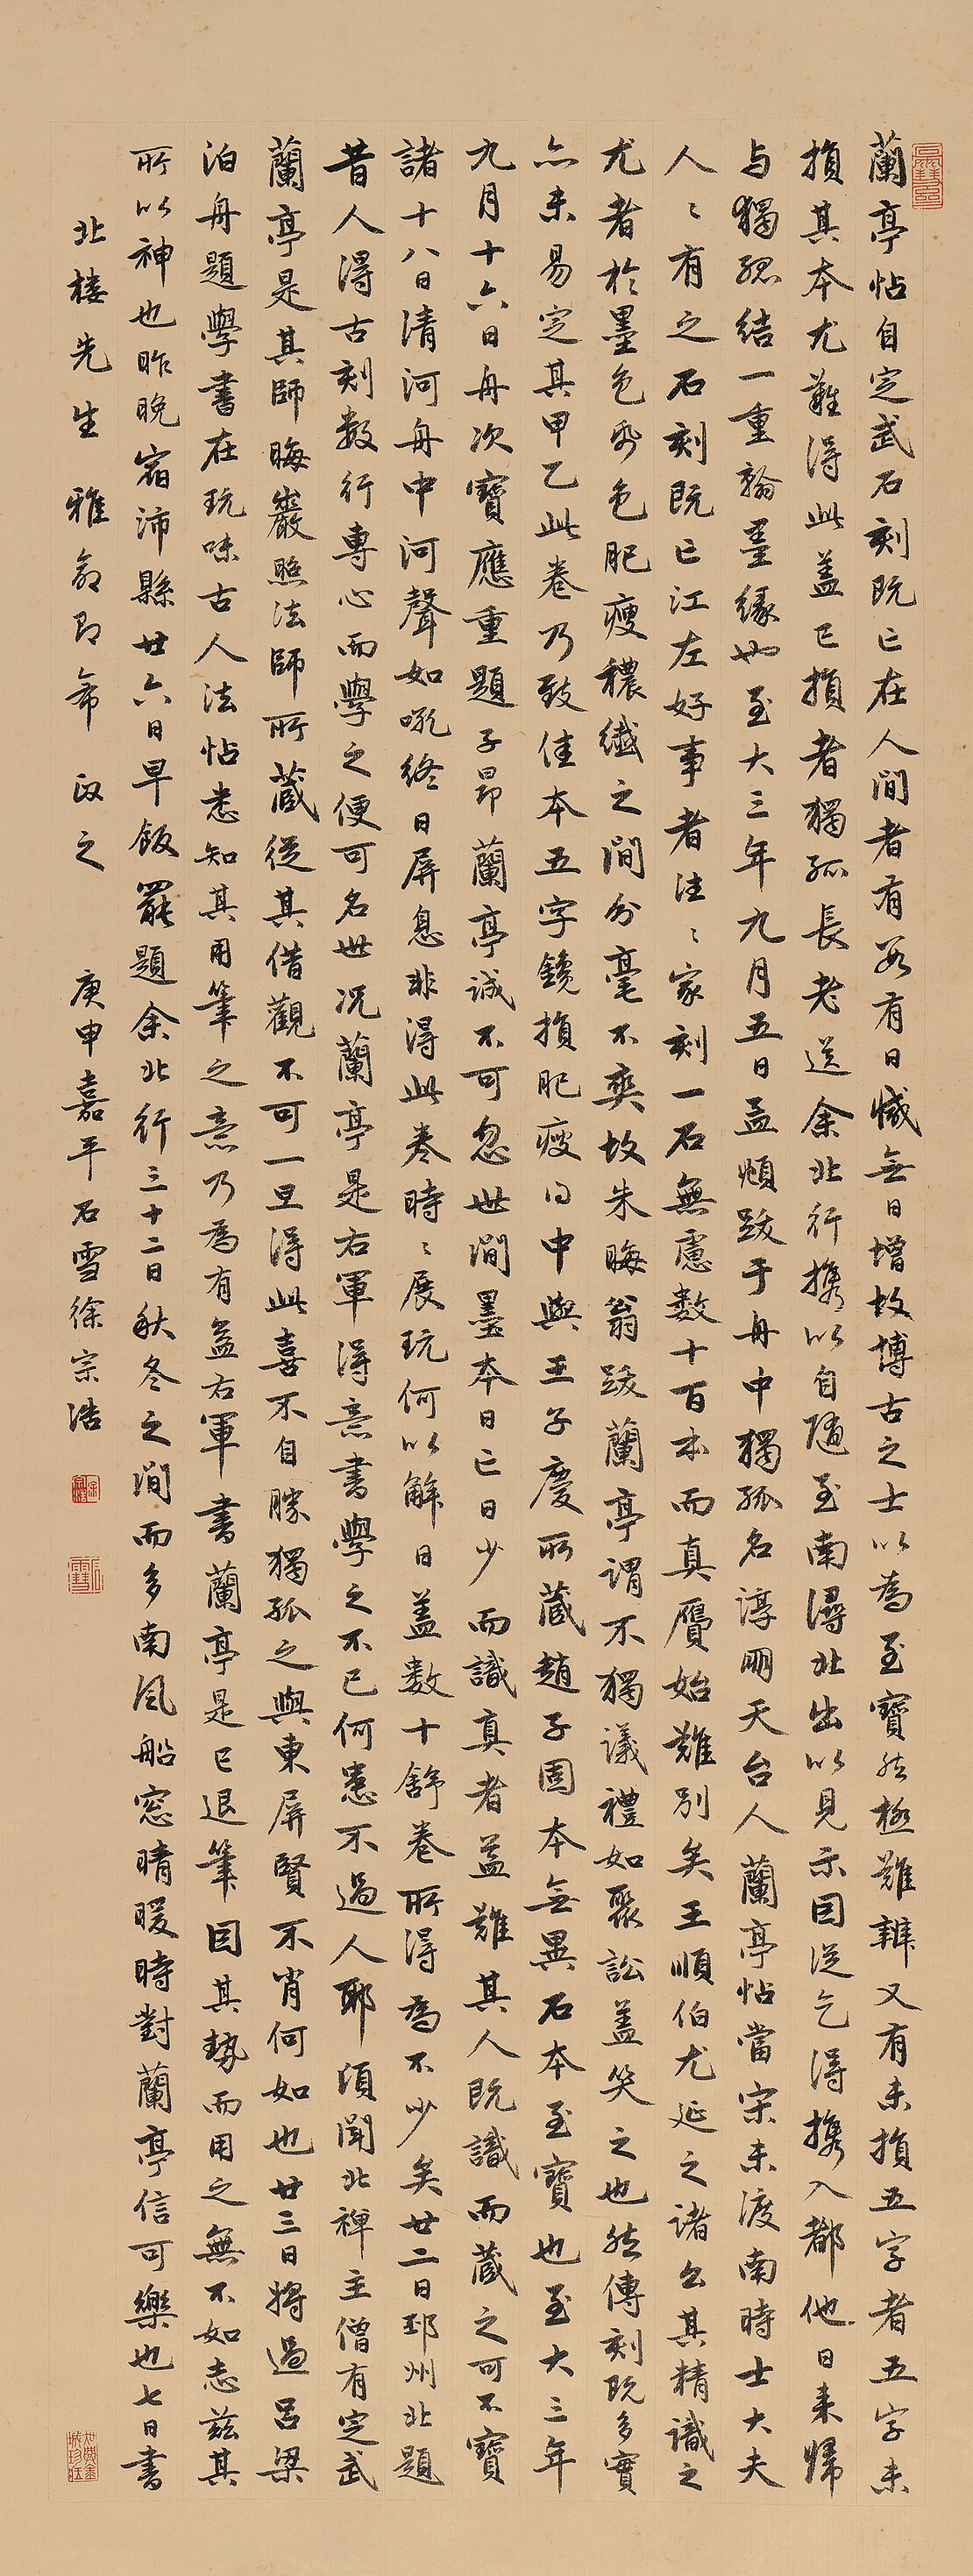 蘭亭帖自定武石刻既亡在人間者有數有日憾無日增故博古之士以為至寶然極難辨又有未損五字者五字未
損其本尤難得此蓋已損者獨孤長老送余北行攜以自隨至南潯北出以見示因從乞得攜入都他日來歸
与獨孤結一重翰墨緣也至大三年九月五日孟頫跋于舟中獨孤名淳朋天台人蘭亭帖當宋未渡南時士大夫
人〻有之石刻既亡江左好事者往〻家刻一石無慮數十百本而真贗始難別矣王順伯尤延之諸公其精識之
尤者於墨色紙色肥瘦穠纖之間分毫不爽故朱晦翁跋蘭亭謂不獨議禮如聚訟蓋笑之也然傳刻既多實
亦未易定其甲乙此卷乃致佳本五字鑱損肥瘦得中與王子慶所藏趙子固本無異石本至寶也至大三年
九月十六日舟次寶應重題子昂蘭亭誠不可忽世間墨本日亡日少而識真者蓋難其人既識而藏之可不寶
諸十八日清河舟中河聲如吼終日屏息非得此卷時〻展玩何以解日蓋數十舒卷所得為不少矣廿二日邳州北題
昔人得古刻數行專心而學之便可名世況蘭亭是右軍得意書學之不已何患不過人耶頃聞北禪主僧有定武
蘭亭是其師晦巖照法師所藏從其借觀不可一旦得此喜不自勝獨孤之與東屏賢不肖何如也廿三日將過呂梁
泊舟題學書在玩味古人法帖悉知其用筆之意乃為有益右軍書蘭亭是已退筆因其勢而用之無不如志茲其
所以神也昨晚宿沛縣廿六日早飯罷題余北行三十二日秋冬之間而多南風船窓晴暖時對蘭亭信可樂也七日書
北樓先生 雅命即希 政之 庚申嘉平石雪徐宗浩